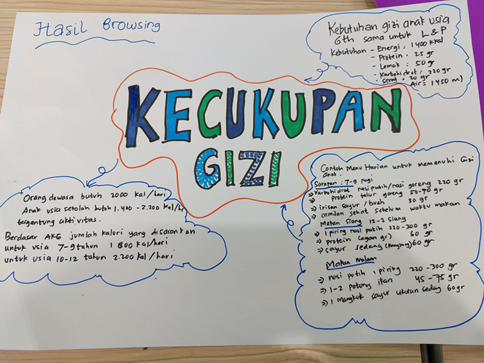 Hasil Browsing
Kebutuhan gizi anak usia
6th sama untuk L & P
Kebutuhan - Energi : 1400 kkal
- Protein : 25 gr
- Lemak : 50 gr
- Karbohidrat : 220 gr
Serat : 20 gr
Air : 1450 ml
KECUKUPAN
GIZI
Orang dewasa butuh 2000 kal/hari
Anak usia sekolah butuh 1.400 - 2.200 kal/
tergantung aktivitas.
Berdasar AKG jumlah kalori yang disarankan
untuk usia 7-9 tahun 1 800 kal/hari
untuk usia 10-12 tahun 2.200 kal/hari
Contoh Menu Harian untuk memenuhi Gizi
anak.
Sarapan : 7-8 pagi
Karbohidrat nasi putih/nasi goreng 220 gr
protein telur goreng
irisan sayur/buah 30 gr
camilan sehat sebelum waktu makan
Makan Siang 12-2 siang
1 piring nasi putih 220-300 gr
protein (ayam gr) 60 gr
sayur sedang (kangkung) 60 gr
Makan malam
nasi putih 1 piring 220-300 gr
1-2 potong ikan 45-75 gr
1 mangkuk sayur ukuran sedang 60 gr